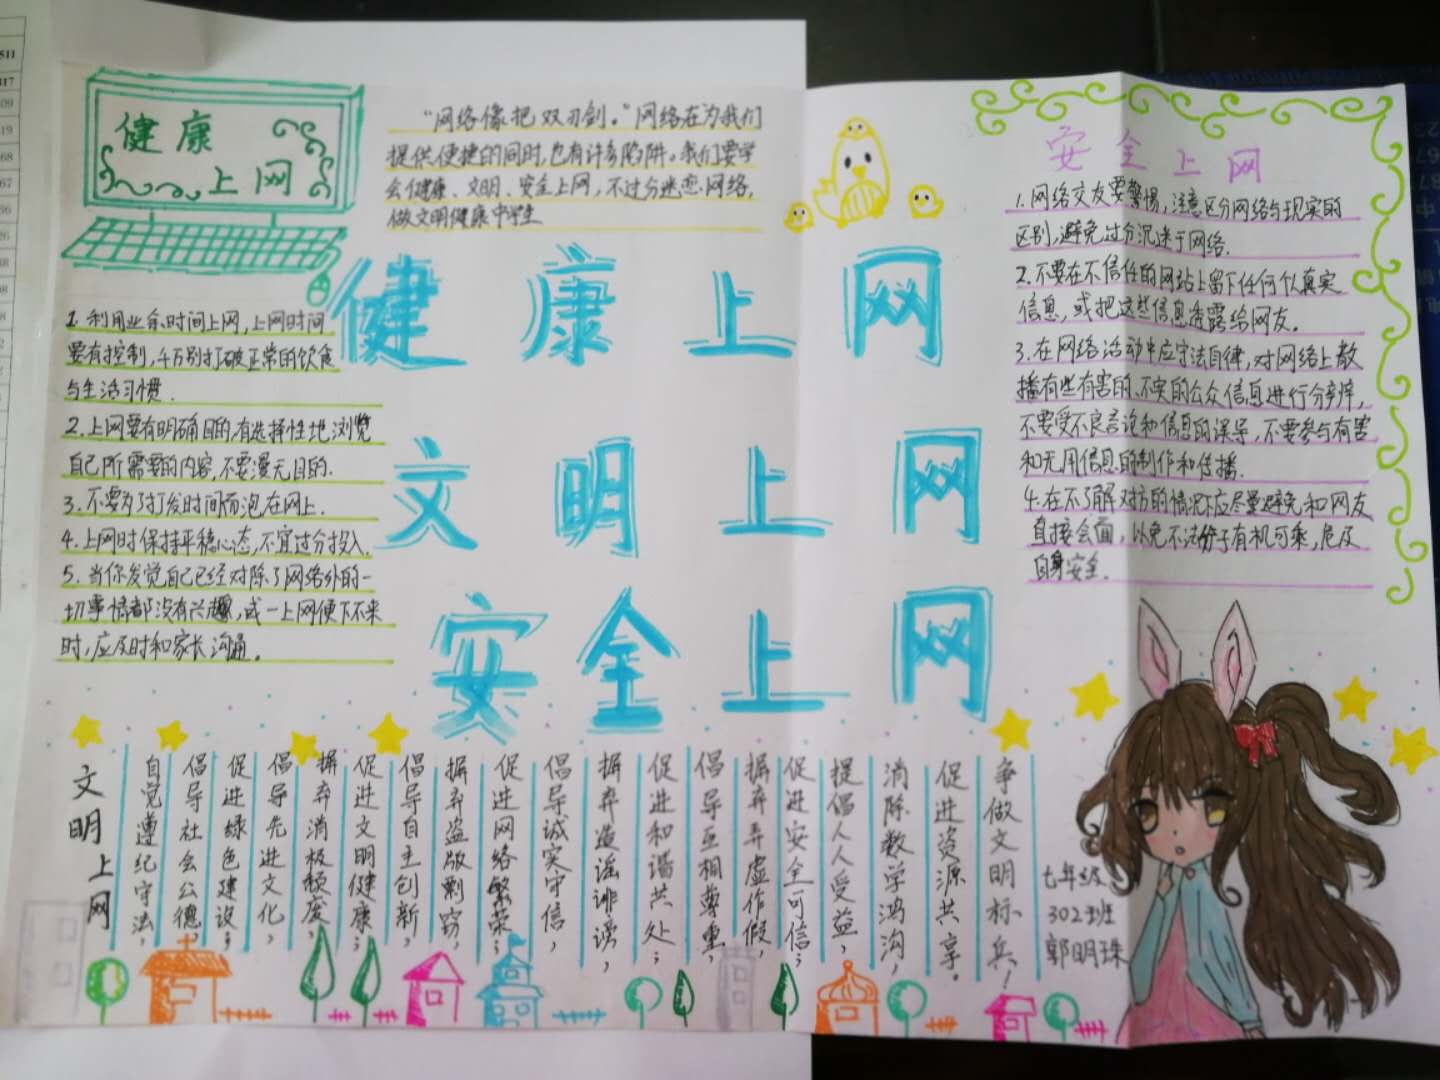 健康
上网
“网络像把双刃剑。”网络在为我们
提供便捷的同时,也有许多陷阱。我们要学
会健康、文明、安全上网,不过分迷恋网络,
做文明健康中学生
健康上网
文明上网
安全上网
1.利用业余时间上网,上网时间
要有控制,千万别打破正常的饮食
与生活习惯.
2.上网要有明确目的,有选择性地浏览
自己所需要的内容,不要漫无目的.
3.不要为了打发时间而泡在网上.
4.上网时保持平稳心态,不宜过分投入.
5.当你发觉自己已经对除了网络外的一
切事情都没有兴趣,或一上网便下不来
时,应及时和家长沟通。
安全上网
1.网络交友要警惕,注意区分网络与现实的
区别,避免过分沉迷于网络.
2.不要在不信任的网站上留下任何个人真实
信息,或把这些信息透露给网友。
3.在网络活动中应守法自律,对网络上散
播有些有害的、不实的公众信息进行分辨,
不要受不良言论和信息的误导,不要参与有害
和无用信息的制作和传播.
4.在不了解对方的情况下应尽量避免和网友
直接会面,以免不法分子有机可乘,危及
自身安全.
文明上网
自觉遵纪守法,
倡导社会公德
促进绿色建设;
倡导先进文化,
摒弃消极颓废,
促进文明健康;
倡导自主创新,
摒弃盗版剽窃,
促进网络繁荣;
倡导诚实守信,
摒弃造谣诽谤,
促进和谐共处;
倡导互相尊重,
摒弃弄虚作假,
促进安全可信;
提倡人人受益,
消除数学鸿沟,
促进资源共享。
争做文明标兵!
七年级
302班
郭明珠